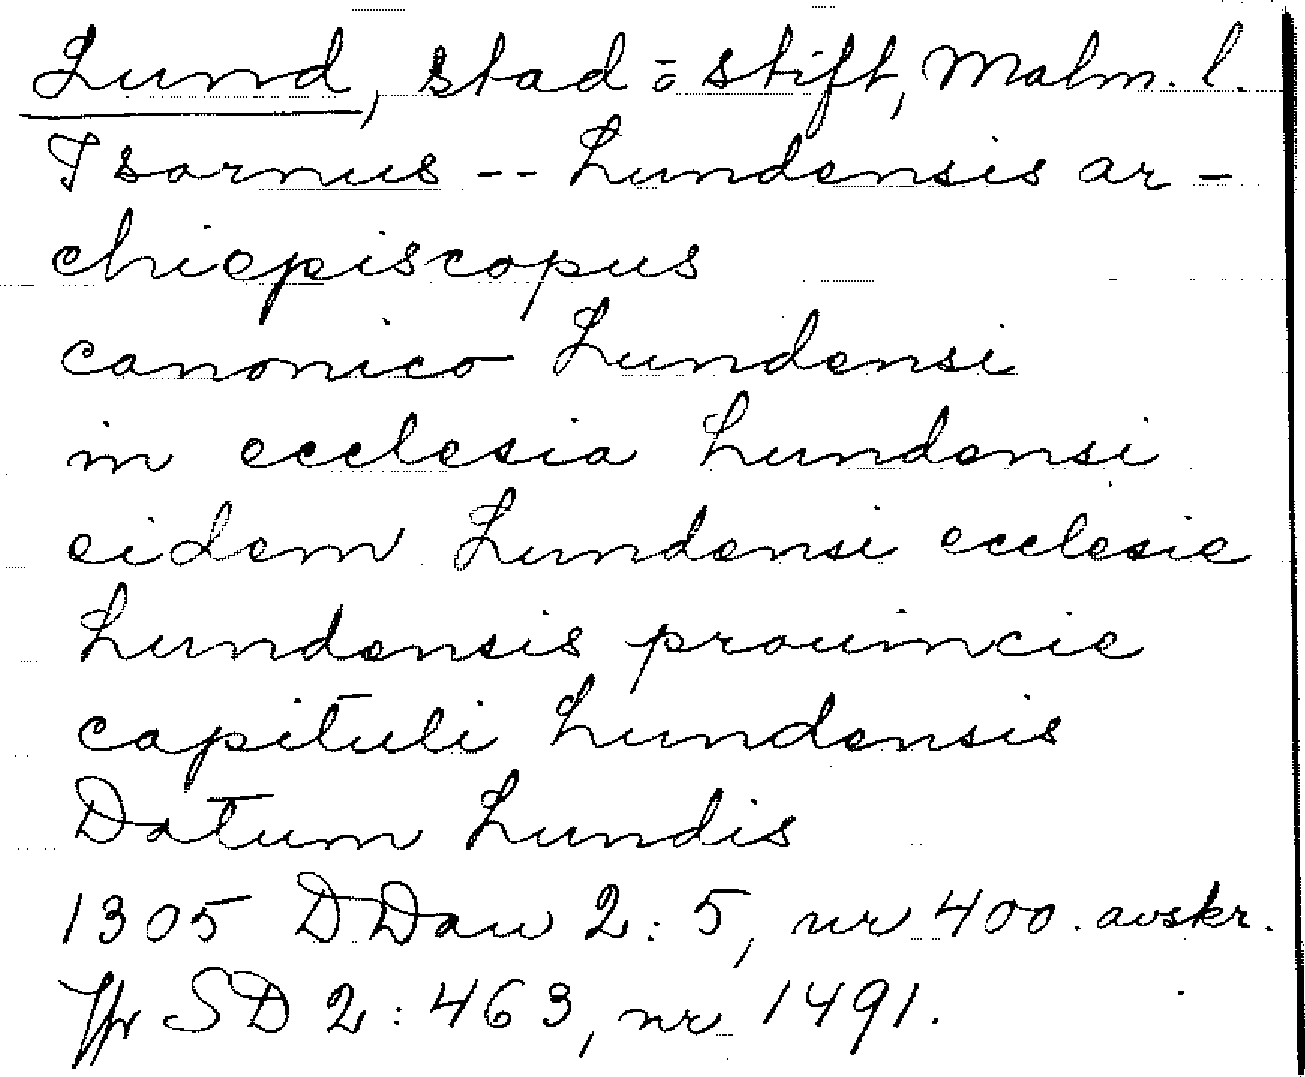 Lund, stad o stift, Malm. l.
Isarnus -- Lundensis ar-
chiepiscopus
canonico Lundensi
in ecclesia Lundensi
eidem Lundensi ecclesie
Lundensis prouincie
capituli Lundensis
Datum Lundis
1305 DDan 2:5, nr 400. avskr.
Jfr SD 2:463, nr 1491.